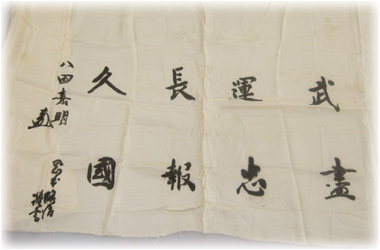 武運長久
盡忠報國
八田嘉明